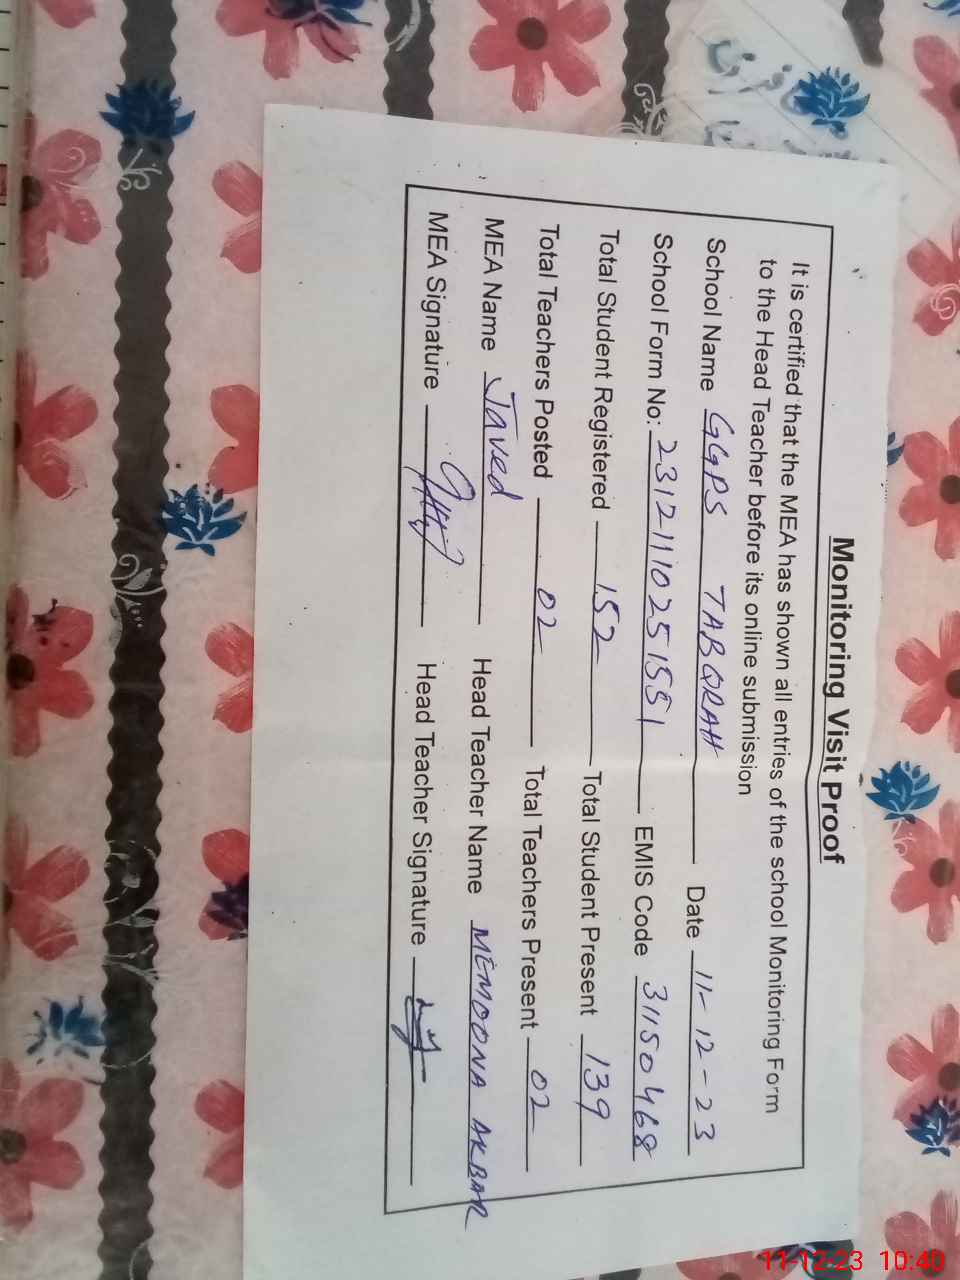 Monitoring Visit Proof
It is certified that the MEA has shown all entries of the school Monitoring Form
to the Head Teacher before its online submission
School Name GGPS TABQRAH Date 11-12-23
School Form No: 23121110251551 EMIS Code 31150468
Total Student Registered 152 Total Student Present 139
Total Teachers Posted 02 Total Teachers Present 02
MEA Name Javed Head Teacher Name MEMOONA AKBAR
MEA Signature Head Teacher Signature
11-12-23 10:40